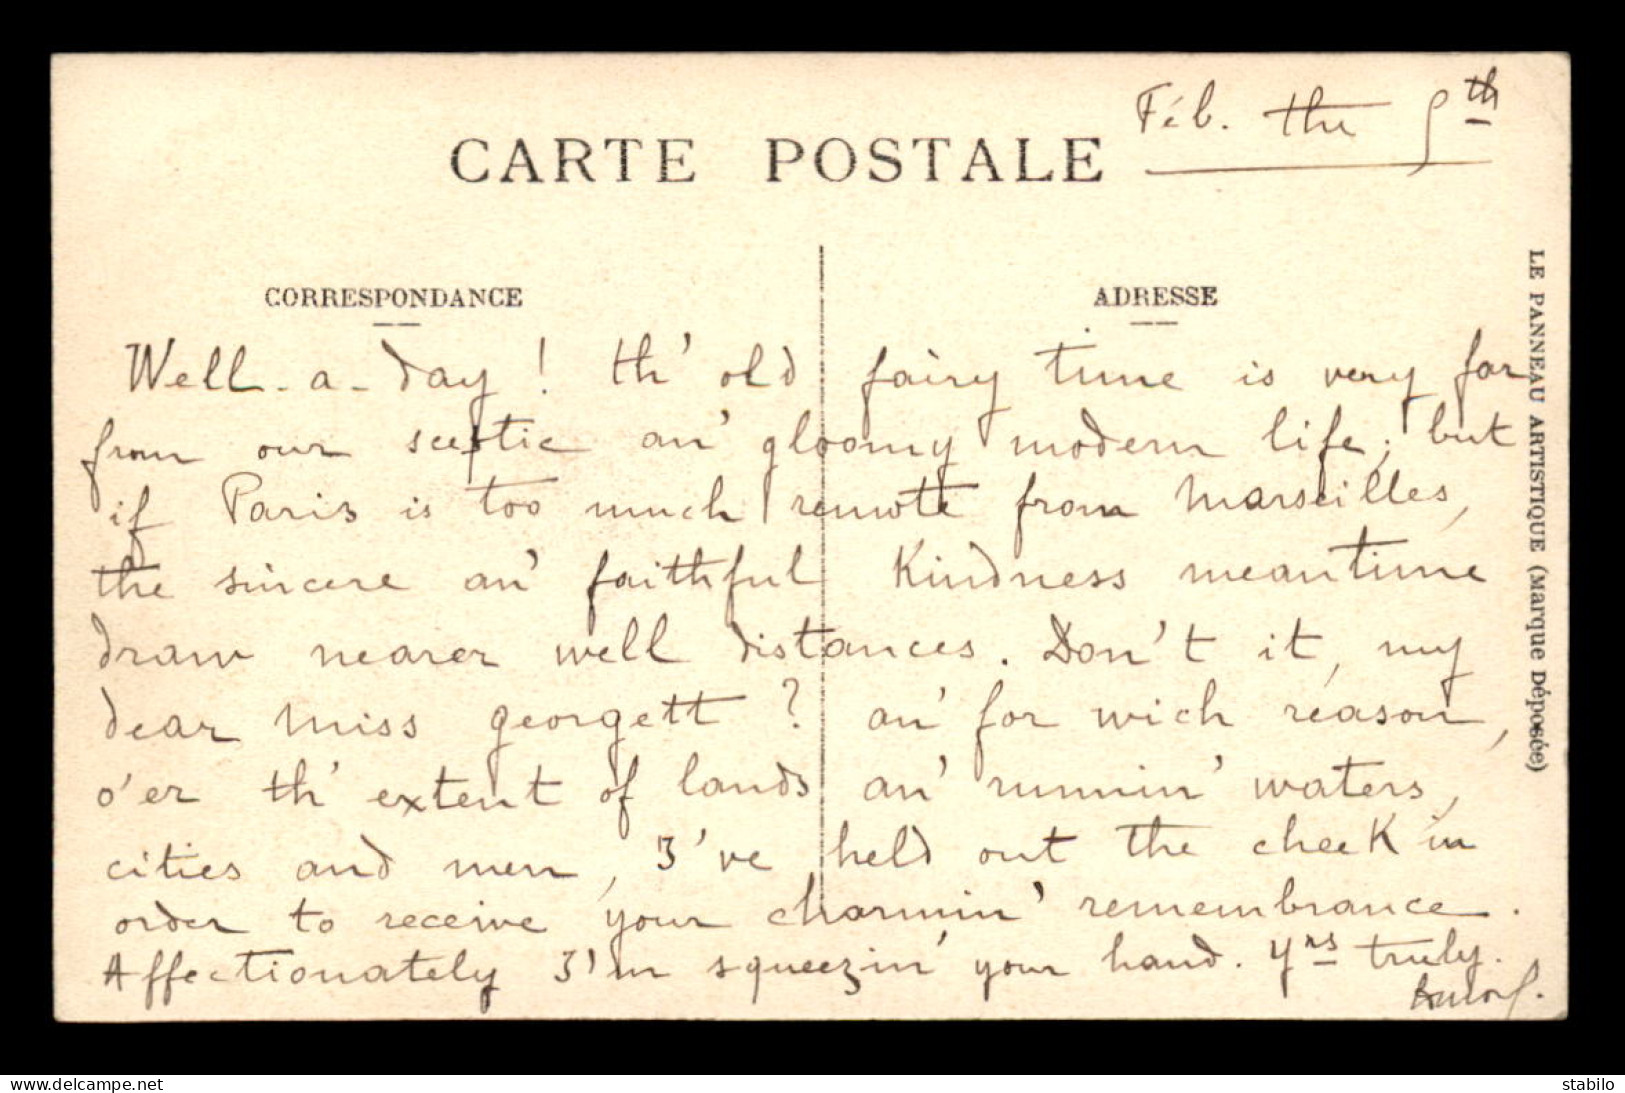 Féb. the 5th
CARTE POSTALE
CORRESPONDANCE
ADRESSE
Well-a-day! th' old fairy time is very far
from our sceptic an' gloomy modern life; but
if Paris is too much remote from Marseilles,
the sincere an' faithful Kindness meantime
draw nearer well distances. Don't it, my
dear Miss georgett? an' for wich reason,
o'er th' extent of lands an' runnin' waters,
cities and men, I've held out the cheeK in
order to receive your charmin' remembrance.
Affectionately I'm squeezin' your hand. Yrs truly.
LE PANNEAU ARTISTIQUE (Marque Déposée)
www.delcampe.net
stabilo